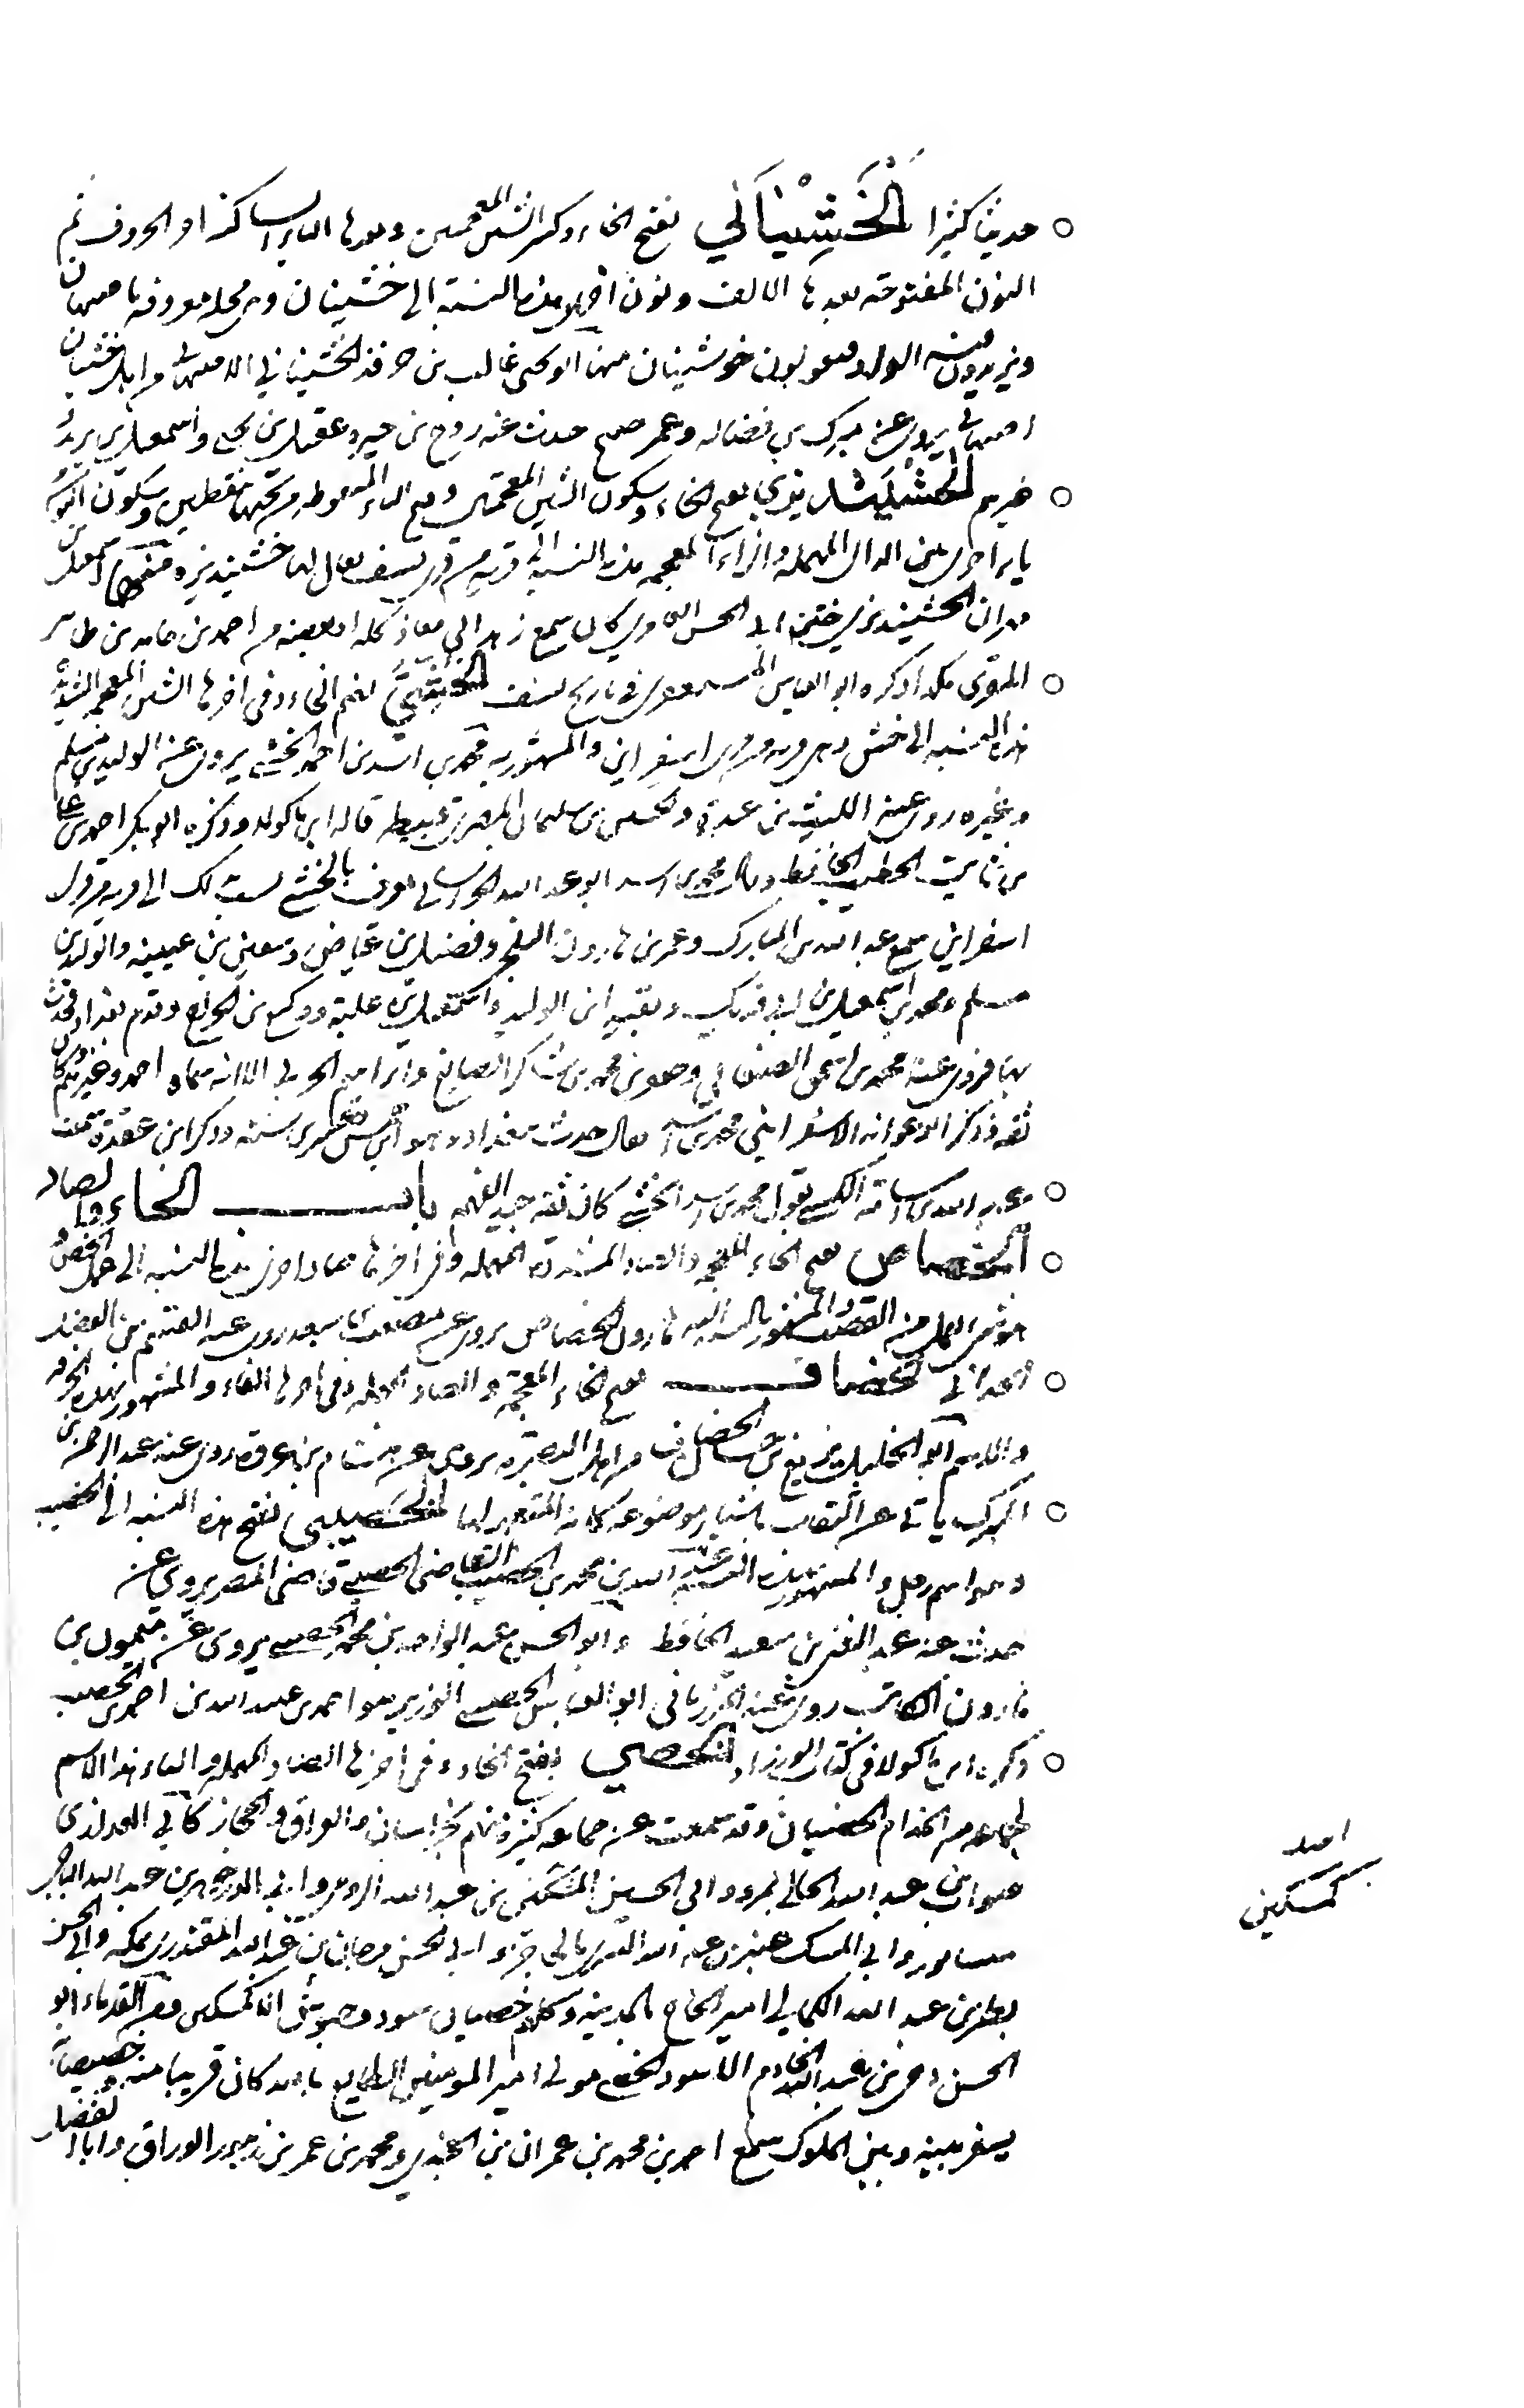 حديثا كثيرا الخَشِيْنَانَي بفتح الخاء وكسر الشين المعجمتين وبعدها الياء الساكنة اخر الحروف ثم
النون المفتوحة بعدها الالف ونون اخرى هذه النسبة الى خشينان وهى محلة معروفة باصبهان
ويزيدون فيه الواو ويقولون خوشينان منها ابو يحيى غالب بن فرقد الخشيناني الاصبهاني من اهل خشينان
اصبهان يروى عن مبارك بن فضالة وعمر صبح حدث عنه روح بن جبر وعقيل بن يحيى واسمعيل بن يزيد
بفتح الخاء وسكون الشين المعجمتين وفتح التاء المنقوطة من تحتها بنقطتين وسكون النون
يا اخرى بين الدال المهملة والزاء المعجمة هذه النسبة الى قرية من قرى نسف يقال لها خشينديزه منها اسمعيل بن
مهران الخشينديزي ختن ابي الحسن العامري كان سمع زهد ابي معاذ كله او بعضه من احمد بن حامد بن طاهر
المقري هكذا ذكره ابو العباس المستغفري في تاريخ نسف الخُشّيَّ بضم الخاء وفى اخرها الشين المعجمة المشددة
هذه النسبة الى خش وهى قرية من قرى اسفراين والمشهور بها محمد بن اسد بن احمد الخشي يروى عن الوليد بن مسلم
وغيره روى عنه الليث بن عبدة و بن سليمان المصري قاله ابن ماكولا وذكره ابو بكر احمد بن علي
بن ثابت الخطيب الحافظ وقال محمد بن اسد ابو عبد الله الخراساني يعرف بالخشي نسب لك الى قرية من قرى
اسفراين سمع عبد الله بن المبارك وعمر بن هارون البلخي وفضيل بن عياض وسفين بن عيينة والوليد بن
مسلم ومحمد بن اسمعيل بن ابي فديك وبقية ابن الوليد واسمعيل بن علية ووكيع بن الجراح وقدم بغداد فحدث
بها فروى عنه محمد بن اسحق الصغاني وجعفر بن محمد بن شاكر الصايغ وابراهيم الحربي الا انه سماه احمد وغيرهم وكان
ثقة وذكر ابو عوانة الاسفرايني محمد بن اسد فقال حدث ببغداد وهو ابن خمس وعشرين سنة وذكر ابن عقدة سمعت
عبد الله بن اسامة الكلبي يقول محمد بن اسد الخشي كان ثقة جيد الفهم باب الخاء والصاد
الخصاص بفتح الخاء المعجمة والصاد المشددة المهملة وفى اخرها صاد اخرى هذه النسبة الى عمل الخص وهو
شى يعمل من القصب والمشهور بالنسبة اليه هارون الخصاص يروى عن مصعب بن سعد روى عنه القسم بن الفضل
الحداني الخصاف بفتح الخاء المعجمة والصاد المهملة وفى اخرها الفاء والمشهور بهذه الحرفة
والاسم ابو الخليل بزيع بن حسان الخصاف من اهل البصرة يروى عن هشام بن عروة روى عنه عبد الرحمن بن
المبارك ياتي عن الثقات باشياء موضوعة كانه المتعمد لها الخَصيبي بفتح هذه النسبة الى الخصيب
وهو اسم رجل والمشهور بهذه النسبة عبد الله بن محمد بن الخصيب القاضي الخصيبي قاضي المصر يروى عن
حدث عنه عبد الغني بن سعيد الحافظ وابو الحسين عبد الواحد بن محمد الخصيبي يروى عن ميمون بن
هارون الكاتب روى عنه المرزباني ابو العباس الخصيبي الوزير هو احمد بن عبيد الله بن احمد بن الخصيب
ذكره ابن ماكولا في كتاب الوزراء الخصي بفتح الخاء وفى اخرها الصاد المهملة والياء هذا الاسم
لجماعة من الخدام الخصيان وقد سمعت عن جماعة كثيرة منهم بخراسان والعراق والحجاز كابي
بن عبد الله بمرو وابي الحسين بن عبد الله وابي الدر جوهر بن عبد الله التاجر
وابي المسك عنبر بن عبد الله وابي الحسن مرجان بن عبد الله المقتدري بمكة وابي الحسن
نظر بن عبد الله الكمالي امير الحاج بالمدينة وكلهم خصيان سود وحبوش الا كمسكين ومن القدماء ابو
الحسن بن عبد الله الخادم الاسود الخصي مولى امير المومنين الطايع بالله كان قريبا منه خصيصا
يسفر بينه وبين الملوك سمع احمد بن محمد بن عمران بن الجندي ومحمد بن عمر بن زنبور الوراق وابا الفضل
كمسكين